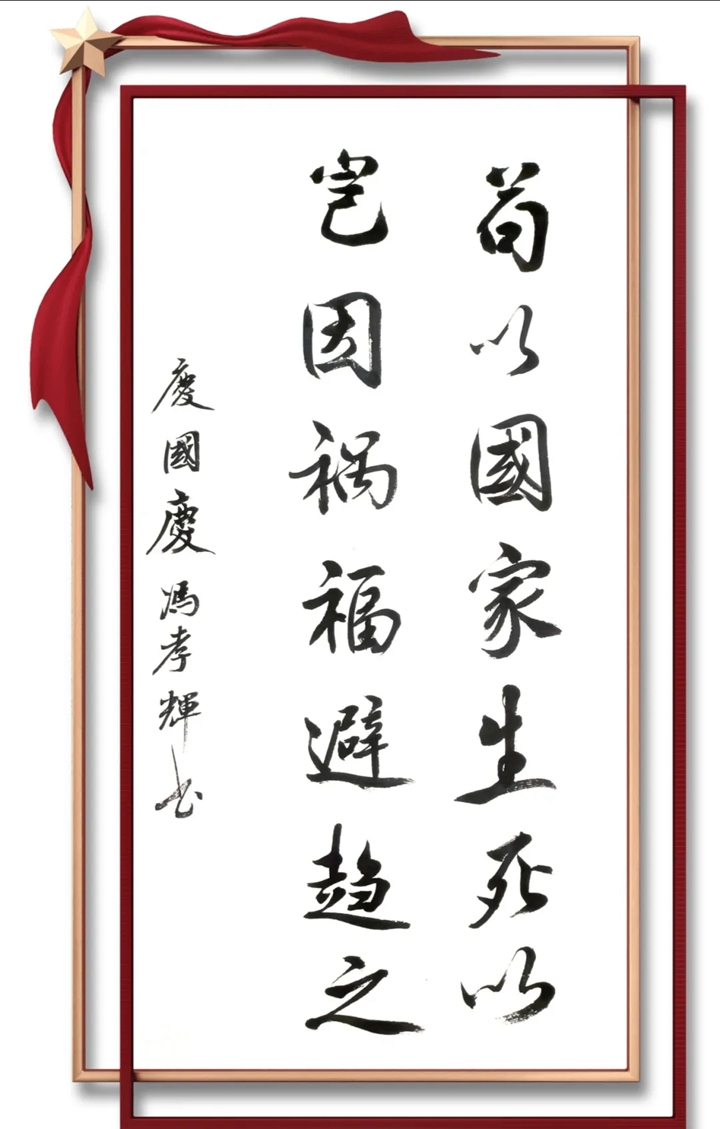 苟以國家生死以
岂因祸福避趋之
慶國慶馮孝輝书